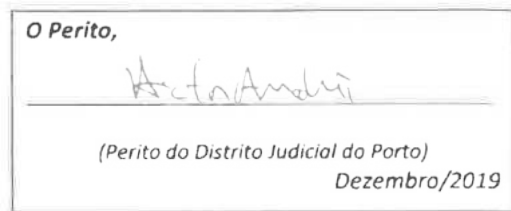 O Perito,
(Perito do Distrito Judicial do Porto)
Dezembro/2019